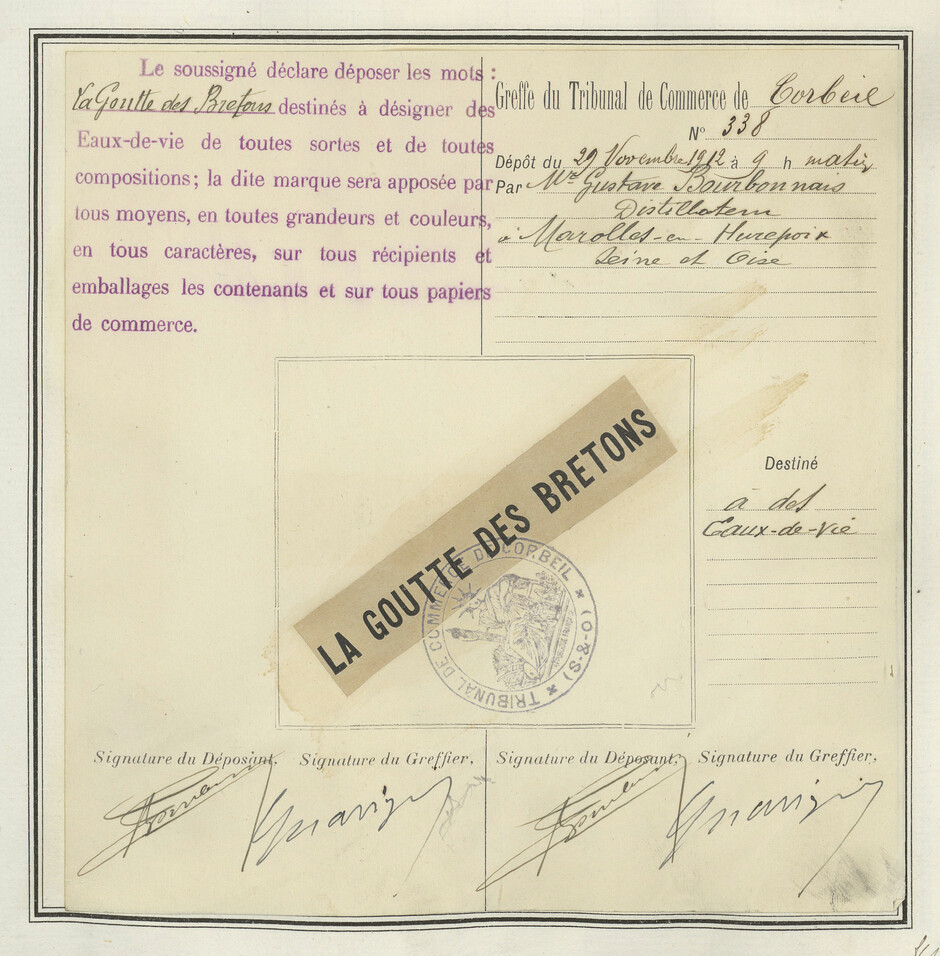 Le soussigné déclare déposer les mots :
La Goutte des Bretons destinés à désigner des
Eaux-de-vie de toutes sortes et de toutes
compositions; la dite marque sera apposée par
tous moyens, en toutes grandeurs et couleurs,
en tous caractères, sur tous récipients et
emballages les contenants et sur tous papiers
de commerce.
Greffe du Tribunal de Commerce de Corbeil
N° 338
Dépôt du 29 Novembre 1912 à 9 h matin
Par Mr Gustave Bourbonnais
Distillateur
à Marolles-en-Hurepoix
Seine et Oise
LA GOUTTE DES BRETONS
TRIBUNAL DE COMMERCE DE CORBEIL (S-&-O)
Destiné
à des
Eaux-de-Vie
Signature du Déposant, Signature du Greffier,
Signature du Déposant, Signature du Greffier,